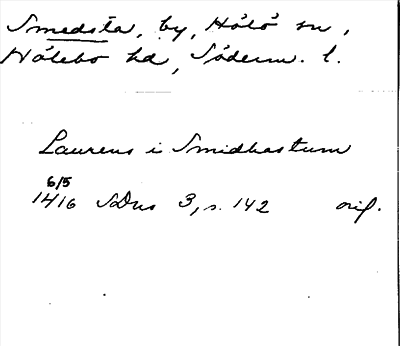 Smedsta, by, Hölö sn,
Hölebo hd, Söderm. l.
Laurens i Smidhastum
6/5
1416 SDns 3, s. 142 orig.